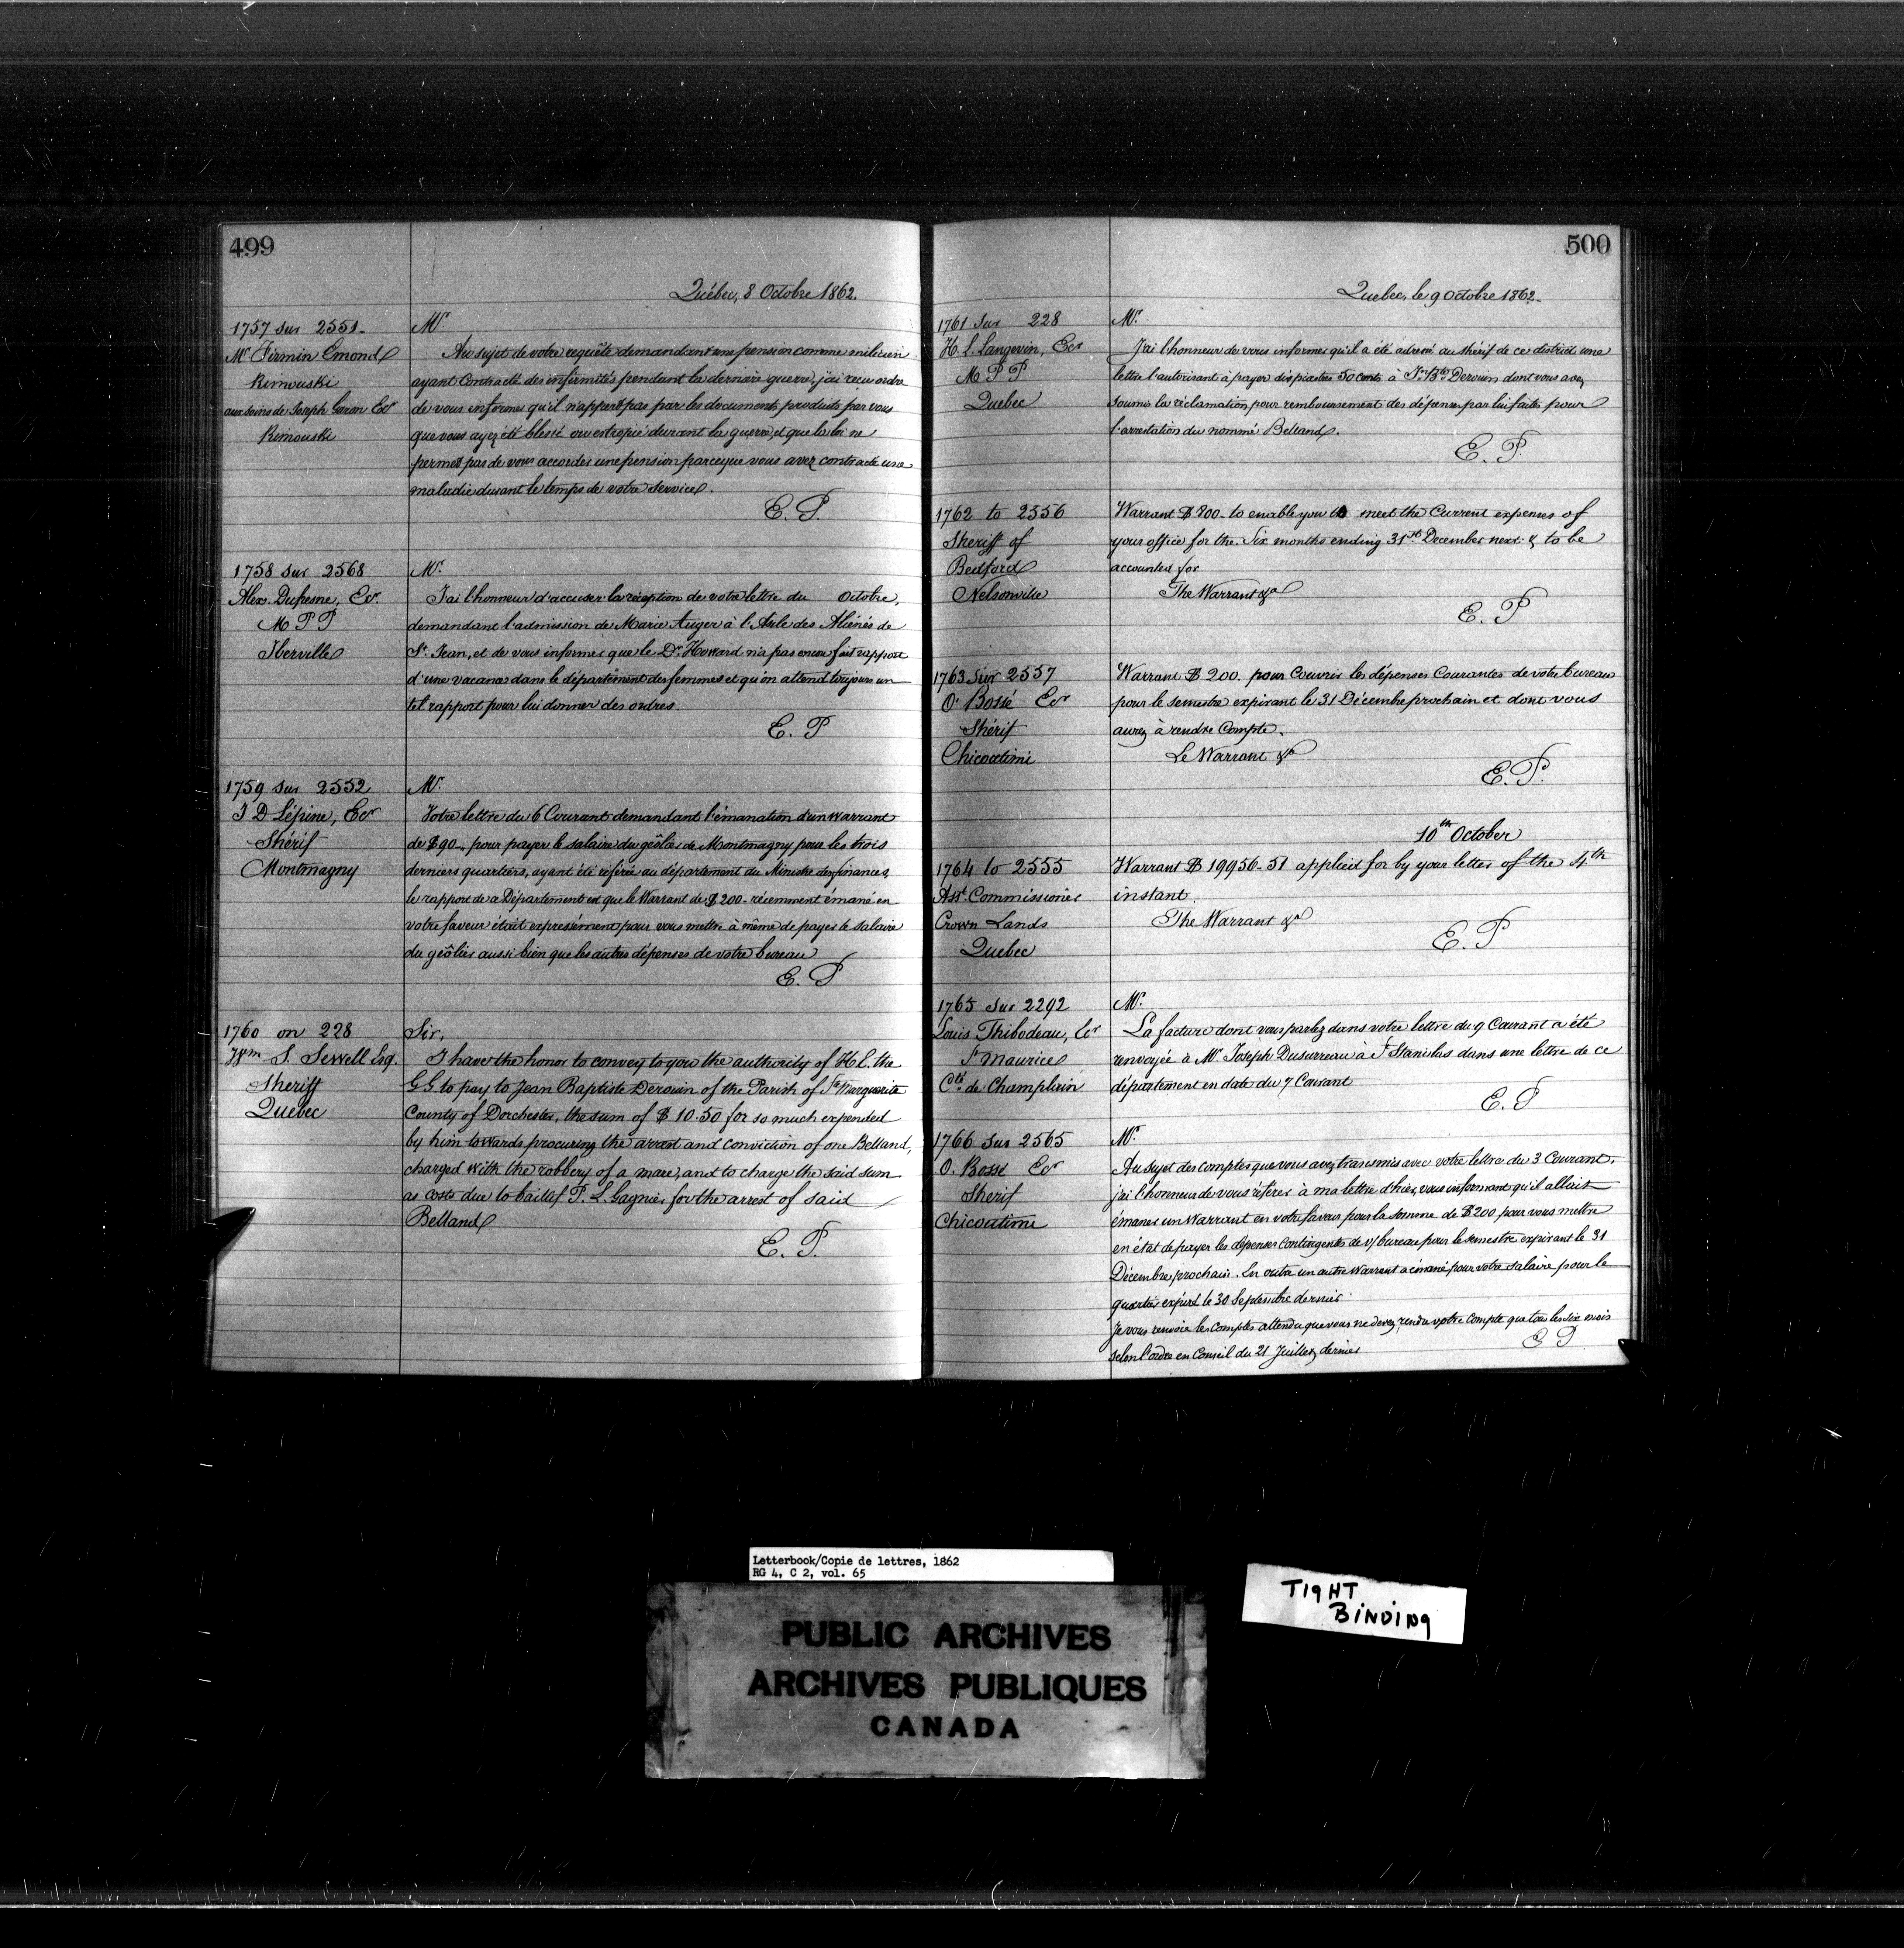 499
Québec, 8 Octobre 1862.
1757 sur 2551
Mr Firmin Emond
Rimouski
aux soins de Joseph Garon Ecr
Rimouski
Mr.
Au sujet de votre requête demandant une pension comme milicien
ayant contracté des infirmités pendant la dernière guerre, j'ai reçu ordre
de vous informer qu'il n'appert pas par les documents produits par vous
que vous ayez été blessé ou estropié durant la guerre, et que la loi ne
permet pas de vous accorder une pension parceque vous avez contracté une
maladie durant le temps de votre service.
E. P.
1758 sur 2568
Alex. Dufresne, Ecr.
M P P
Iberville
Mr.
J'ai l'honneur d'accuser la réception de votre lettre du Octobre,
demandant l'admission de Marie Auger à l'Asile des Aliénés de
St. Jean, et de vous informer que le Dr. Howard n'a pas encore fait rapport
d'une vacance dans le département des femmes et qu'on attend toujours un
tel rapport pour lui donner des ordres.
E. P
1759 sur 2552
J D Lépine, Ecr
Shérif
Montmagny
Mr.
Votre lettre du 6 Courant demandant l'émanation d'un warrant
de $90, pour payer le salaire du geôlier de Montmagny pour les trois
derniers quartiers, ayant été référée au département du Ministre des finances,
le rapport de ce Département est que le Warrant de $200 récemment émané en
votre faveur était expressément pour vous mettre à même de payer le salaire
du geôlier aussi bien que les autres dépenses de votre bureau
E. P
1760 on 228
Wm S. Sewell Esq.
Sheriff
Quebec
Sir,
I have the honor to convey to you the authority of H. E. the
G G to pay to Jean Baptiste Derouin of the Parish of Ste Marguerite
County of Dorchester, the sum of $10.50 for so much expended
by him towards procuring the arrest and conviction of one Belland,
charged with the robbery of a mare, and to charge the said sum
as costs due to bailiff P. L. Gagnier for the arrest of said
Belland
E. P.
500
Quebec, le 9 Octobre 1862
1761 sur 228
H. L. Langevin, Ecr
M P P
Quebec
Mr.
J'ai l'honneur de vous informer qu'il a été adressé au shérif de ce district une
lettre l'autorisant à payer dix piastres 50 cents à Jn Bte Derouin dont vous avez
soumis la réclamation pour remboursement des dépenses par lui faites pour
l'arrestation du nommé Belland.
E. P.
1762 to 2556
Sheriff of
Bedford
Nelsonville
Warrant $800 to enable you to meet the Current expenses of
your office for the Six months ending 31st December next & to be
accounted for
The Warrant &a
E. P
1763 sur 2557
O. Bossé Ecr
Shérif
Chicoutimi
Warrant $200. pour Couvrir les dépenses Courantes de votre bureau
pour le semestre expirant le 31 Décembre prochain et dont vous
aurez à rendre Compte.
Le Warrant &a
E. P.
10th October
1764 to 2555
Asst Commissioner
Crown Lands
Quebec
Warrant $19956-51 applied for by your letter of the 4th
instant.
The Warrant &a
E. P
1765 sur 2292
Louis Thibodeau, Ecr
St Maurice
Cté de Champlain
Mr.
La facture dont vous parlez dans votre lettre du 9 Courant a été
renvoyée à Mr Joseph Dusurreau à St Stanislas dans une lettre de ce
département en date du 7 Courant
E. P
1766 sur 2565
O. Bossé Ecr
Sherif
Chicoutimi
Mr.
Au sujet des comptes que vous avez transmis avec votre lettre du 3 Courant,
j'ai l'honneur de vous référer à ma lettre d'hier, vous informant qu'il allait
émaner un Warrant en votre faveur pour la somme de $200 pour vous mettre
en état de payer les dépenses contingentes de v/ bureau pour le semestre expirant le 31
Décembre prochain. En outre un autre Warrant a émané pour votre salaire pour le
quartier expiré le 30 Septembre dernier.
Je vous renvoie les comptes attendu que vous ne devez rendre votre compte que tous les six mois
selon l'ordre en Conseil du 21 Juillet, dernier
E P
Letterbook/Copie de lettres, 1862
RG 4, C 2, vol. 65
TIGHT
BINDING
PUBLIC ARCHIVES
ARCHIVES PUBLIQUES
CANADA